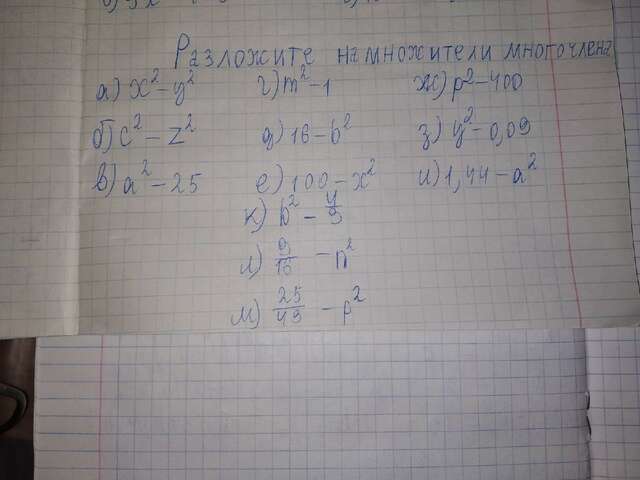 Разложите на множители многочлена
а) x² – y² г) m² – 1 ж) p² – 400
б) c² – z² д) 16 – b² з) y² – 0,09
в) a² – 25 е) 100 – x² и) 1,44 – a²
к) b² – 4/9
л) 9/16 – n²
м) 25/49 – p²